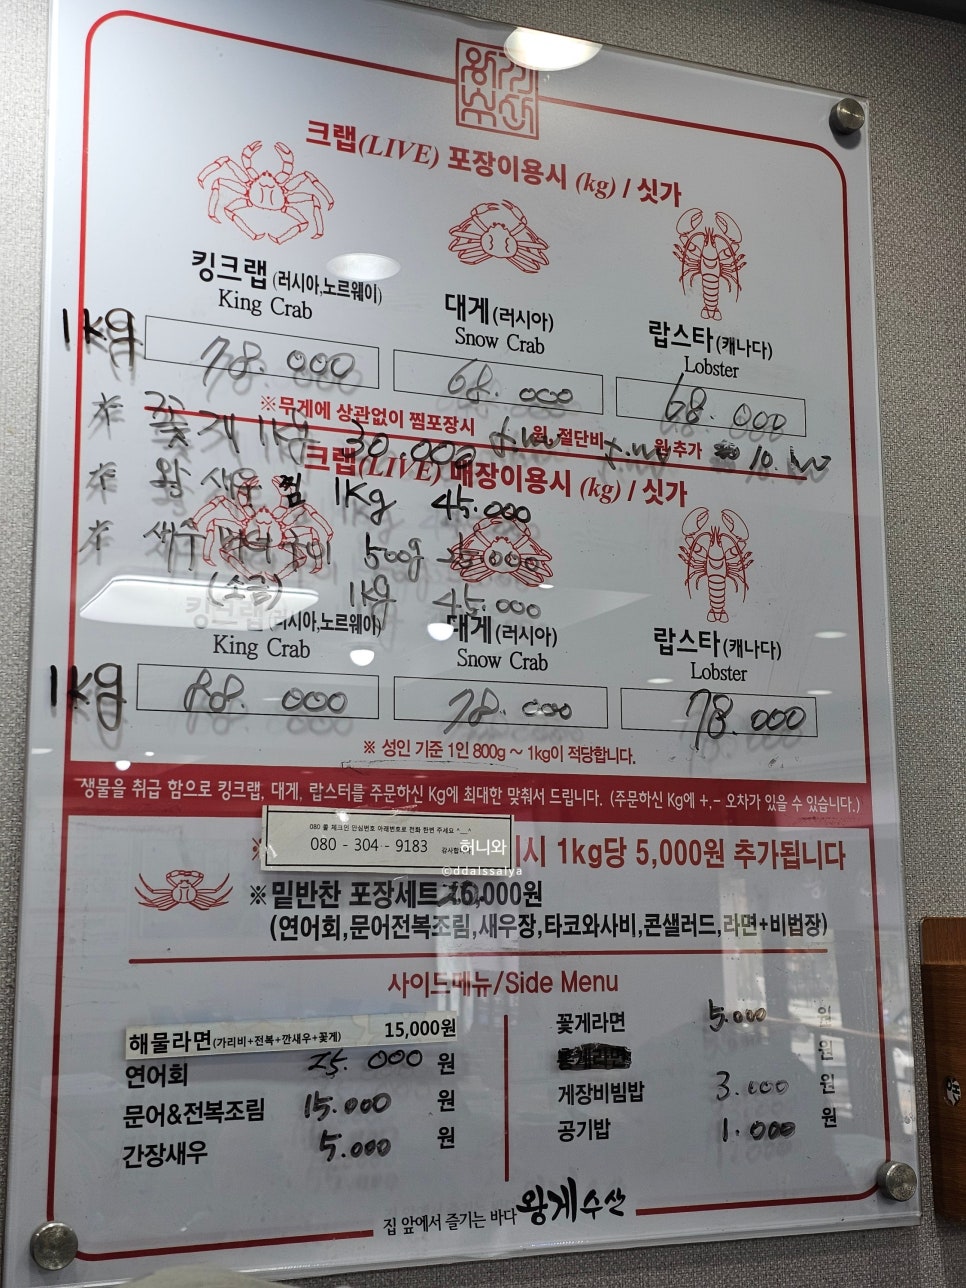 왕게수산
크랩(LIVE) 포장이용시 (kg) / 싯가
킹크랩 (러시아,노르웨이)
King Crab
대게 (러시아)
Snow Crab
랍스타 (캐나다)
Lobster
1kg 78.000 68.000 68.000
※무게에 상관없이 찜포장시 원 절단비 원 추가 10.000
※ 꽃게 1kg 30.000
크랩(LIVE) 매장이용시 (kg) / 싯가
※ 왕새우 찜 1kg 45.000
※ 새우 머리 구이 500g
(소금) 1kg 45.000
킹크랩 (러시아,노르웨이)
King Crab
대게 (러시아)
Snow Crab
랍스타 (캐나다)
Lobster
1kg 88.000 78.000 78.000
※ 성인 기준 1인 800g ~ 1kg이 적당합니다.
생물을 취급 함으로 킹크랩, 대게, 랍스터를 주문하신 Kg에 최대한 맞춰서 드립니다. (주문하신 Kg에 +,- 오차가 있을 수 있습니다.)
080 콜 체크인 안심번호 아래번호로 전화 한번 주세요 ^__^
080 - 304 - 9183 감사합
허니와
©ddalssalya
시 1kg당 5,000원 추가됩니다
※밑반찬 포장세트 000원
(연어회,문어전복조림,새우장,타코와사비,콘샐러드,라면+비법장)
사이드메뉴/Side Menu
해물라면(가리비+전복+깐새우+꽃게) 15,000원
연어회 25.000 원
문어&전복조림 15.000 원
간장새우 5.000 원
꽃게라면 5.000 원
원
게장비빔밥 3.000 원
공기밥 1.000 원
집 앞에서 즐기는 바다 왕게수산